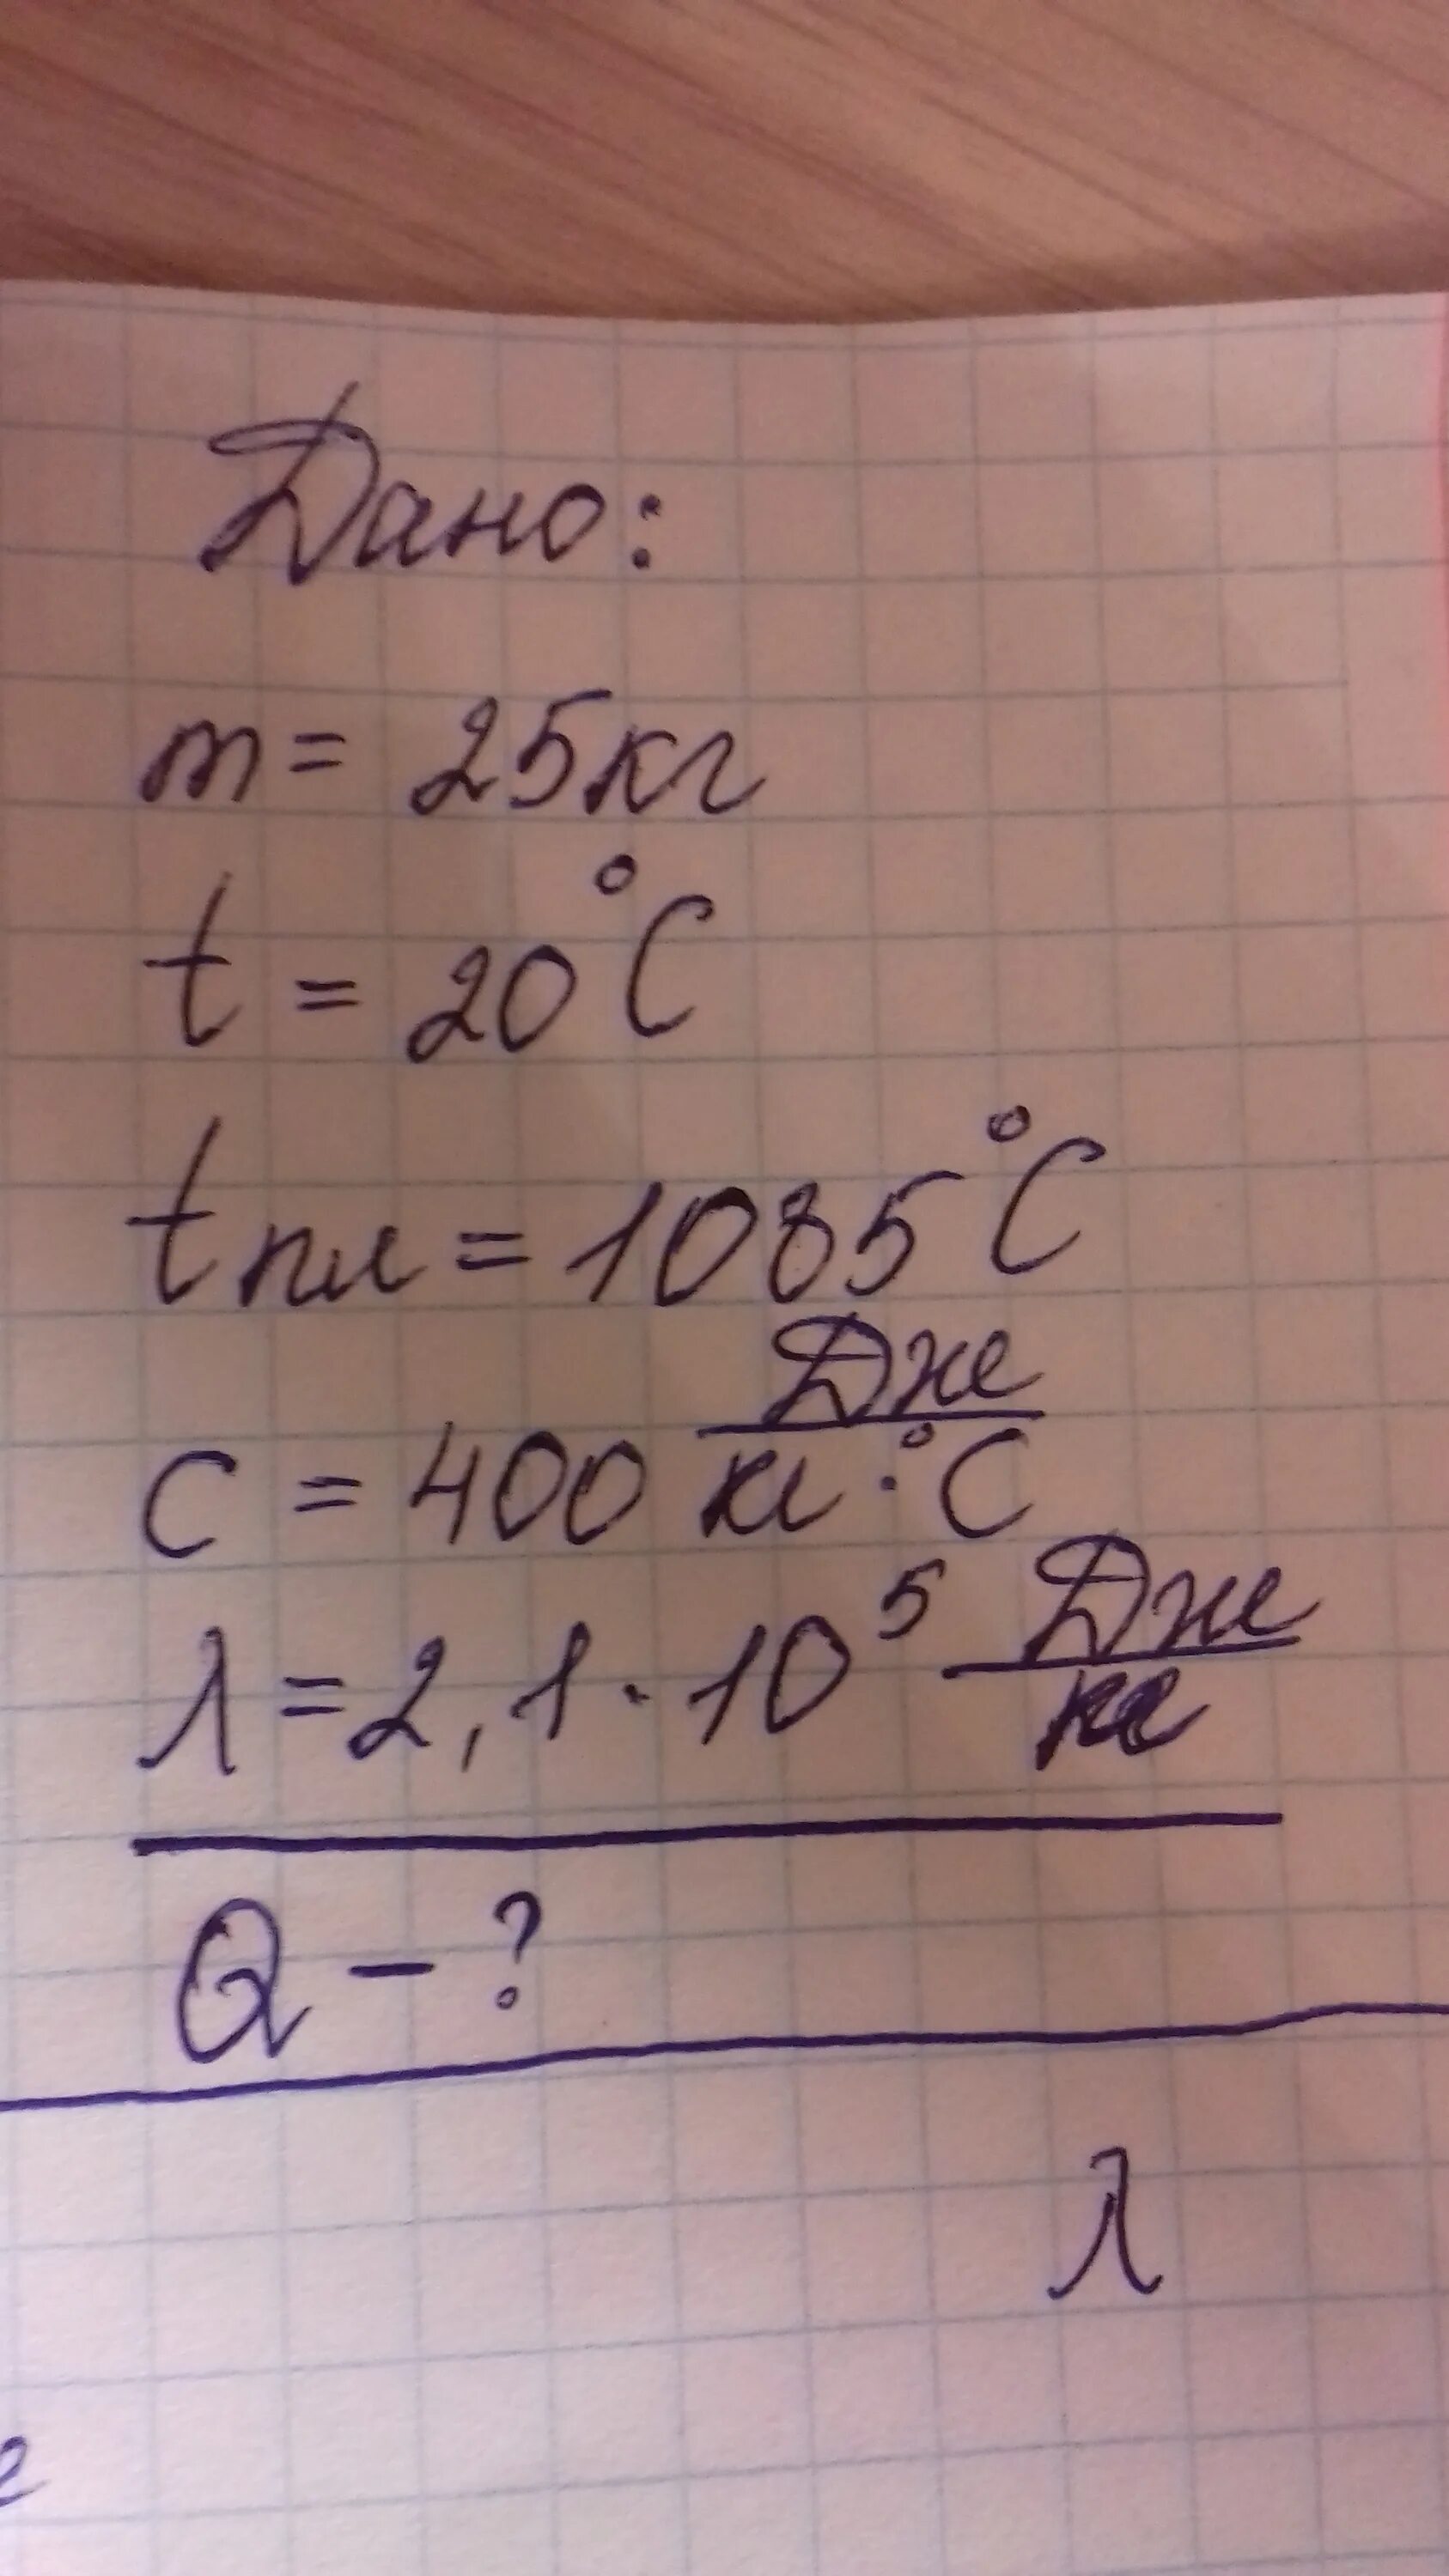 Дано:
m = 25кг
t = 20°C
tпл = 1085°C
c = 400 Дж/кг·°C
λ = 2,1·10⁵ Дж/кг
Q - ?
λ